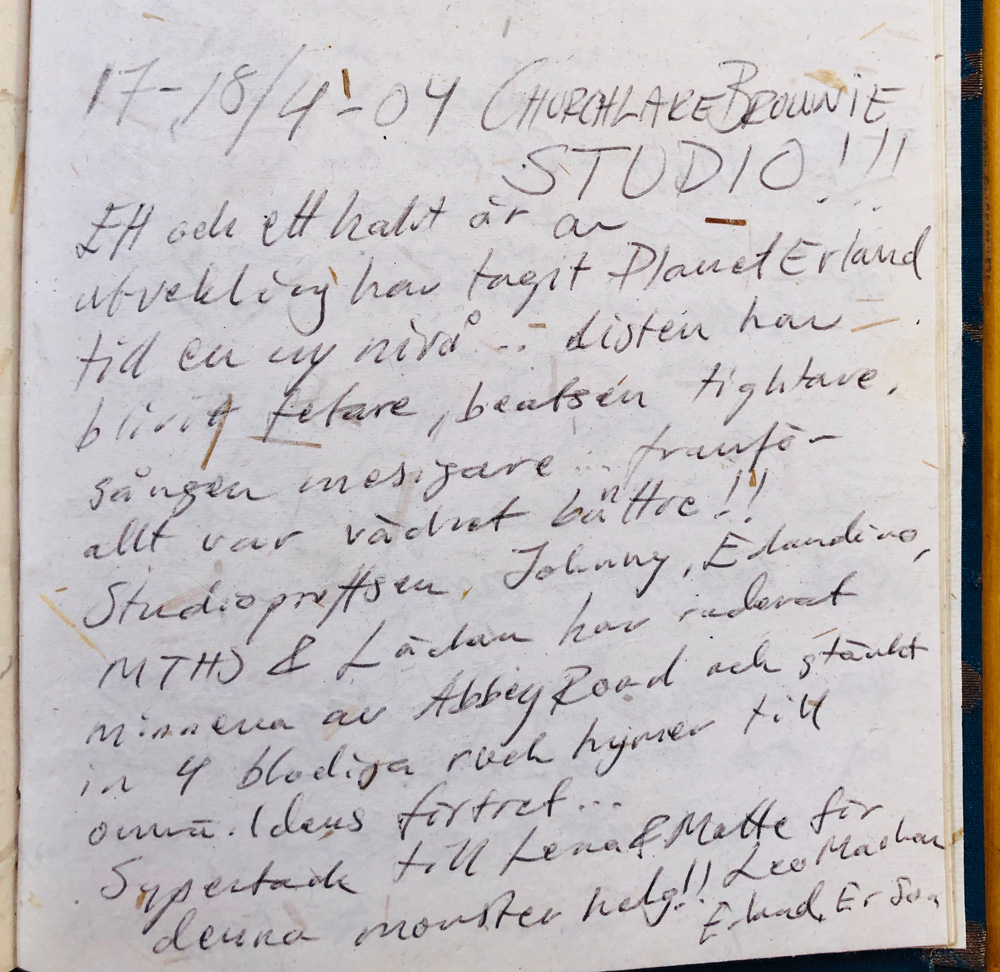 17-18/4-04 CHURCHLAKEBROWNIE
STUDIO!!!
Ett och ett halvt år av
utveckling har tagit Planet Erland
till en ny nivå... disten har
blivit fetare, beatsen tightare,
sången mesigare... framför-
allt var vädret bättre!!
Studioproffsen, Johnny, Erlandino,
MTHS & Lådan har raderat
minnena av Abbey Road och stänkt
in 4 blodiga rock hymer till
omvä.ldens förtret...
Supertack till Lena & Matte för
denna monster helg!! Leo
Erland, Er Son